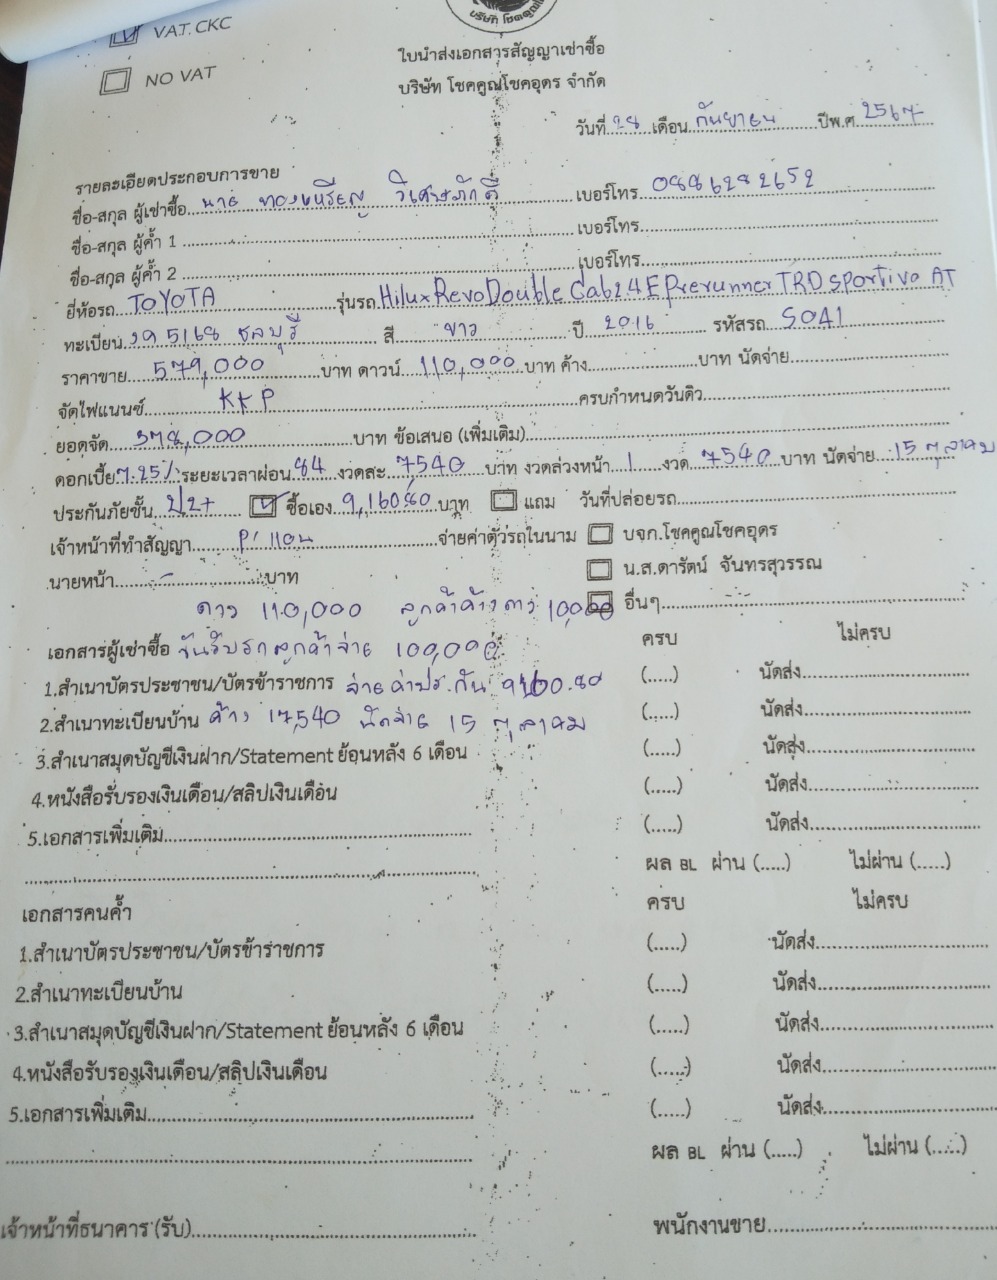 บริษัท โชคคูณโชค
VAT.CKC
NO VAT
ใบนำส่งเอกสารสัญญาเช่าซื้อ
บริษัท โชคคูณโชคอุดร จำกัด
วันที่ 28 เดือน กันยายน ปีพ.ศ 2567
รายละเอียดประกอบการขาย
ชื่อ-สกุล ผู้เช่าซื้อ นาย ทองเหรียญ วิเศษภักดี เบอร์โทร. 0886282652
ชื่อ-สกุล ผู้ค้ำ 1 เบอร์โทร.
ชื่อ-สกุล ผู้ค้ำ 2 เบอร์โทร.
ยี่ห้อรถ TOYOTA รุ่นรถ Hilux Revo Double Cab 2.4 E Prerunner TRD Sportivo AT
ทะเบียน 5168 ชลบุรี สี ขาว ปี 2016 รหัสรถ SOA1
ราคาขาย 579,000 บาท ดาวน์ 110,000 บาท ค้าง บาท นัดจ่าย
จัดไฟแนนซ์ KKP ครบกำหนดวันดิว
ยอดจัด 378,000 บาท ข้อเสนอ (เพิ่มเติม)
ดอกเบี้ย 7.25% ระยะเวลาผ่อน 84 งวดละ 7540 บาท งวดล่วงหน้า 1 งวด 7540 บาท นัดจ่าย 15 ตุลาคม
ประกันภัยชั้น ป2+ ซื้อเอง 9,160.80 บาท แถม วันที่ปล่อยรถ
เจ้าหน้าที่ทำสัญญา จ่ายค่าตัวรถในนาม บจก.โชคคูณโชคอุดร
นายหน้า - บาท น.ส.ดารัตน์ จันทรสุวรรณ
ดาว 110,000 ลูกค้าค้างดาว 10,000 อื่นๆ
เอกสารผู้เช่าซื้อ วันรับรถลูกค้าจ่าย 100,000 ครบ ไม่ครบ
1.สำเนาบัตรประชาชน/บัตรข้าราชการ จ่ายค่าปร.กัน 9160.80 (.....) นัดส่ง
2.สำเนาทะเบียนบ้าน ค้าง 17,540 นัดจ่าย 15 ตุลาคม (.....) นัดส่ง
3.สำเนาสมุดบัญชีเงินฝาก/Statement ย้อนหลัง 6 เดือน (.....) นัดส่ง
4.หนังสือรับรองเงินเดือน/สลิปเงินเดือน (.....) นัดส่ง
5.เอกสารเพิ่มเติม (.....) นัดส่ง
ผล BL ผ่าน (.....) ไม่ผ่าน (.....)
เอกสารคนค้ำ ครบ ไม่ครบ
1.สำเนาบัตรประชาชน/บัตรข้าราชการ (.....) นัดส่ง
2.สำเนาทะเบียนบ้าน (.....) นัดส่ง
3.สำเนาสมุดบัญชีเงินฝาก/Statement ย้อนหลัง 6 เดือน (.....) นัดส่ง
4.หนังสือรับรองเงินเดือน/สลิปเงินเดือน (.....) นัดส่ง
5.เอกสารเพิ่มเติม (.....) นัดส่ง
ผล BL ผ่าน (.....) ไม่ผ่าน (.....)
เจ้าหน้าที่ธนาคาร (รับ) พนักงานขาย